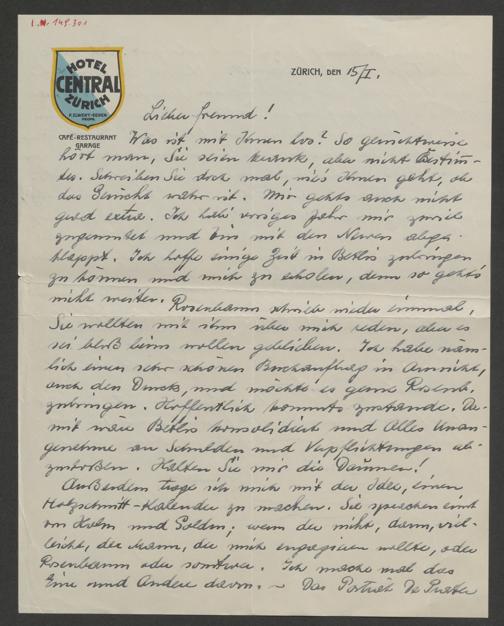 I.N. 149.301
HOTEL
CENTRAL
ZÜRICH
CAFÉ-RESTAURANT
GARAGE
ZÜRICH, DEN 15/I.
Lieber Freund!
Was ist mit Ihnen los? So gerüchtweise
hört man, Sie seien krank, aber nicht Bestimm-
tes. Schreiben Sie doch mal, wie's Ihnen geht, ob
das Gerücht wahr ist. Mir gehts auch nicht
grad extra. Ich habe voriges Jahr mir zuviel
zugemutet und bin mit den Nerven abge-
klappt. Ich hoffe einige Zeit in Betlis zubringen
zu können und mich zu erholen, denn so geht's
nicht weiter.
Rosenbaum schrieb wieder einmal,
Sie wollten mit ihm über mich reden, aber es
sei bloß beim wollen geblieben. Ich habe näm-
lich einen sehr schönen Buchauftrag in Aussicht,
auch den Druck, und möchte es gerne Rosenb.
zubringen. Hoffentlich kommts zustande. Da-
mit wäre Betlis konsolidiert und Alles Unan-
genehme an Schulden und Verpflichtungen ab-
zustoßen. Halten Sie mir die Daumen!
Außerdem trage ich mich mit der Idee, einen
Holzschnitt-Kalender zu machen. Sie sprachen einst
von Holm und Golden; wenn der nicht, dann, viel-
leicht, der Mann, der mich engagieren wollte, oder
Rosenbaum oder sonstwer. Ich mache mal das
Eine und Andere davon. – Das Porträt De Pury